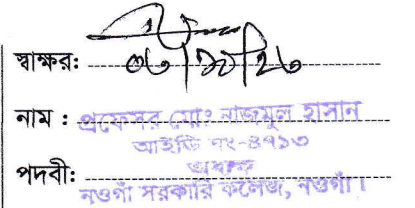 স্বাক্ষর: ০৬/১১/২৩
নাম : প্রফেসর মোঃ নাজমুল হাসান
আইডি নং-৪৭১৩
পদবী: অধ্যক্ষ
নওগাঁ সরকারি কলেজ, নওগাঁ।